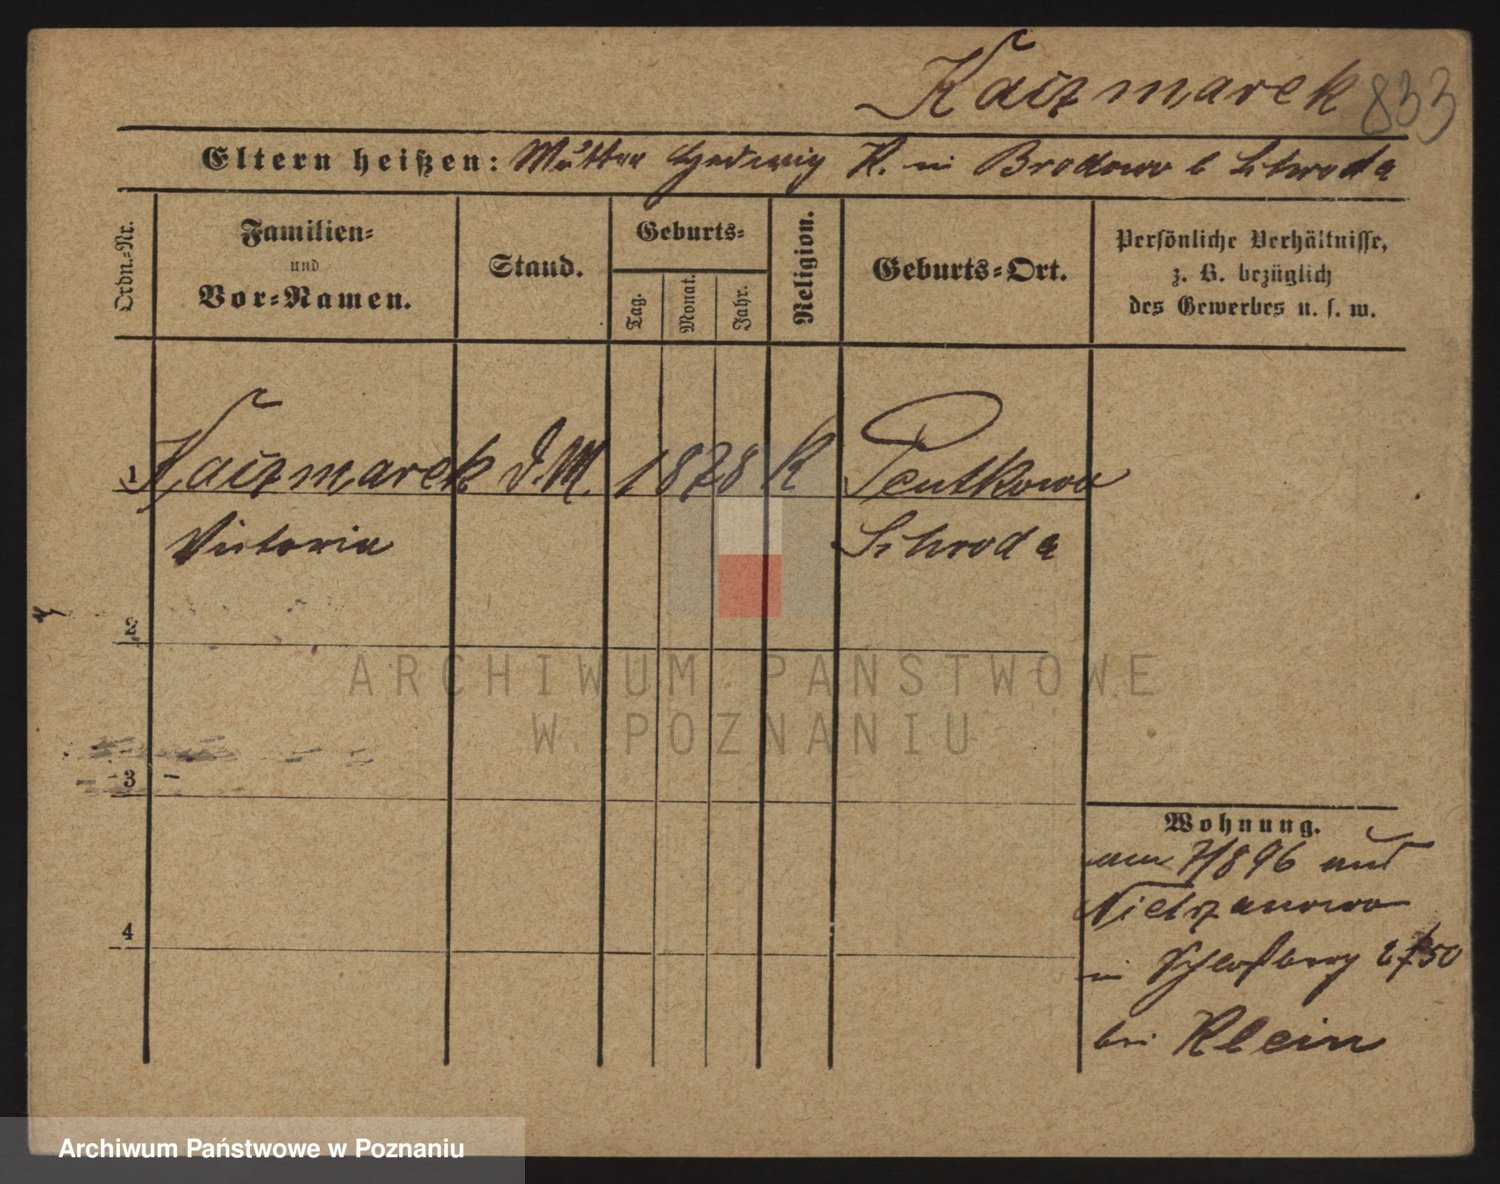 Kaczmarek 833
Eltern heißen: Mutter Hedwig K. in Brodowo b Schroda
Ordn.-Nr.
Familien-
und
Vor-Namen.
Stand.
Geburts-
Tag.
Monat.
Jahr.
Religion.
Geburts-Ort.
Persönliche Verhältnisse,
z. B. bezüglich
des Gewerbes u. s. w.
1 Kaczmarek d. M. 1878 K Pentkowo
Victoria Schroda
2
3
4
Wohnung.
am 7/8 96 aus
Nietrzanowo
in
bei Klein
ARCHIWUM PAŃSTWOWE
W POZNANIU
Archiwum Państwowe w Poznaniu